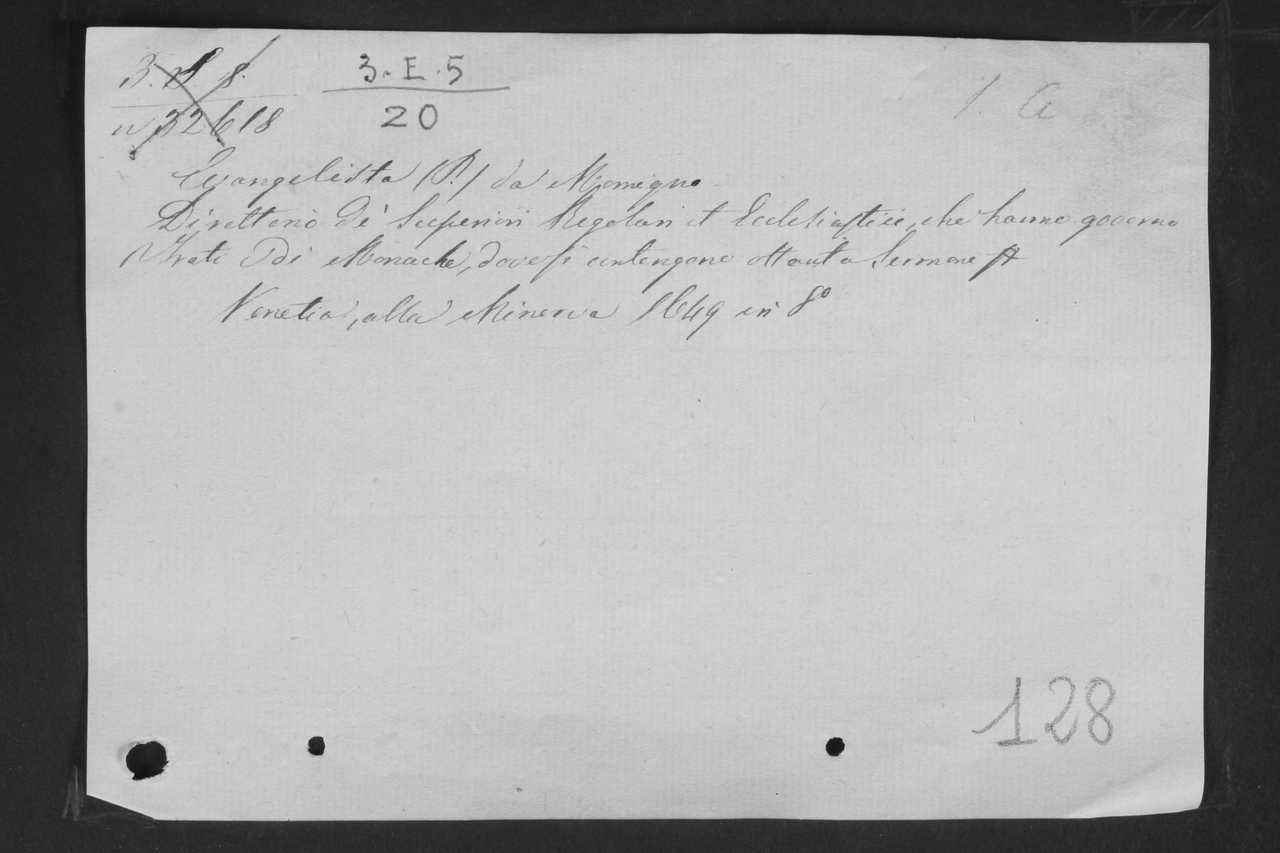 3. E. 5
20
1. a
n 32618
Evangelista (P.) da Momigno
Direttorio de' Superiori Regolari et Ecclesiastici, che hanno governo
Frati o di Monache, dove si contengono ottanta Sermoni
Venetia, alla Minerva 1649 in 8º
128